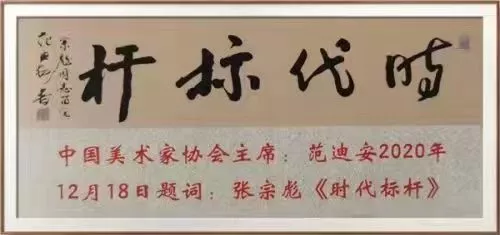 时代标杆
宗彪同志留念
范迪安书
中国美术家协会主席：范迪安2020年
12月18日题词：张宗彪《时代标杆》